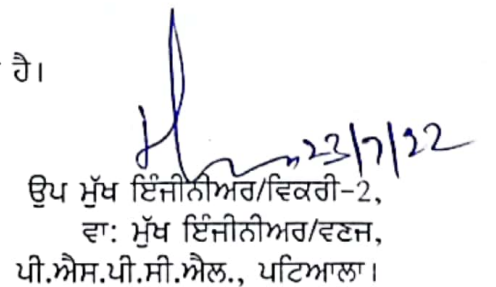 ਹੈ।
23/7/22
ਉਪ ਮੁੱਖ ਇੰਜੀਨੀਅਰ/ਵਿਕਰੀ-2,
ਵਾ: ਮੁੱਖ ਇੰਜੀਨੀਅਰ/ਵਣਜ,
ਪੀ.ਐਸ.ਪੀ.ਸੀ.ਐਲ., ਪਟਿਆਲਾ।